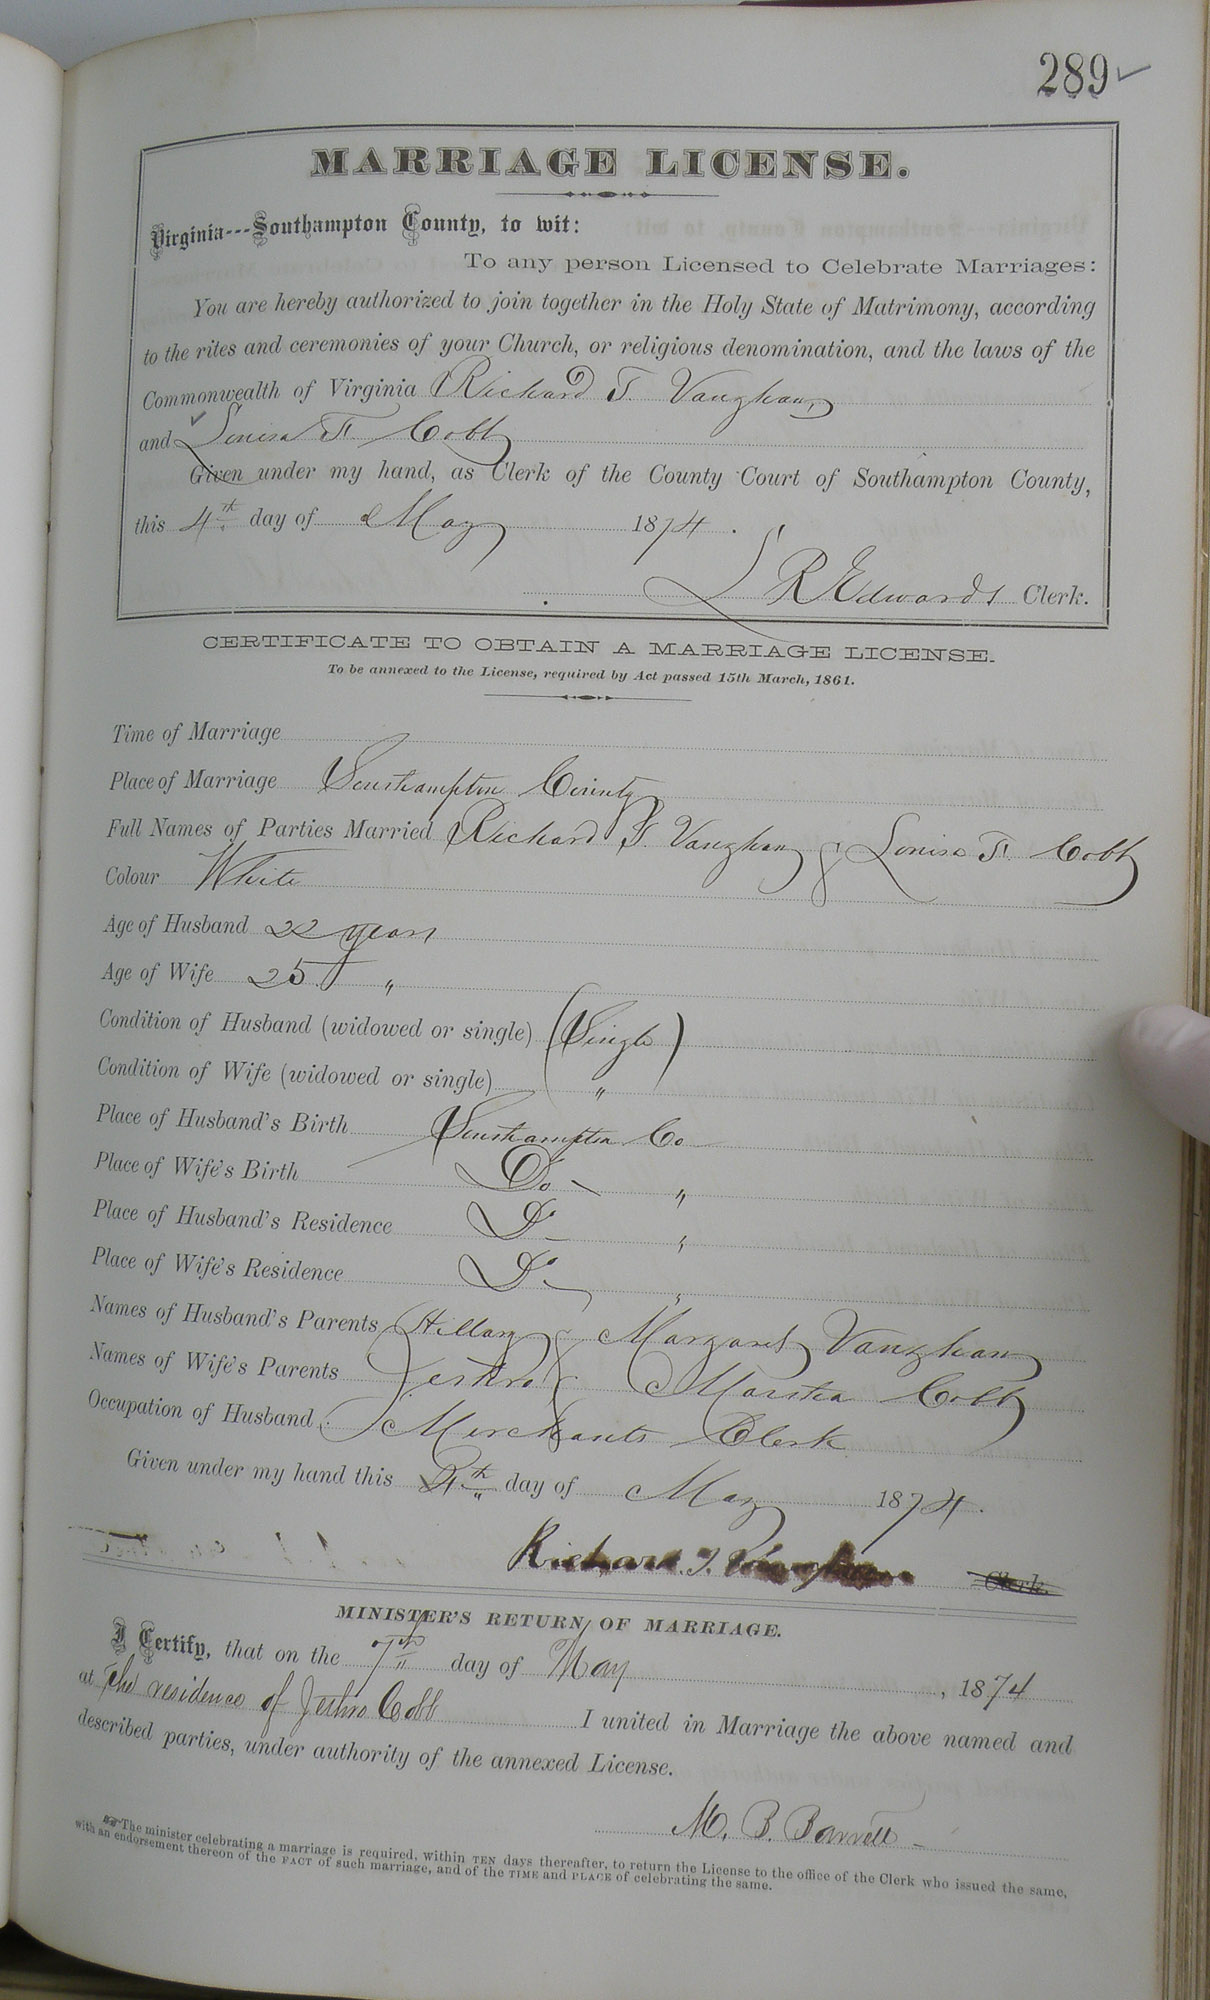 289
MARRIAGE LICENSE.
Virginia---Southampton County, to wit:
To any person Licensed to Celebrate Marriages:
You are hereby authorized to join together in the Holy State of Matrimony, according
to the rites and ceremonies of your Church, or religious denomination, and the laws of the
Commonwealth of Virginia Richard T. Vaughan
and Louisa F. Cobb
Given under my hand, as Clerk of the County Court of Southampton County,
this 4th day of May 1874.
L R Edwards Clerk.
CERTIFICATE TO OBTAIN A MARRIAGE LICENSE.
To be annexed to the License, required by Act passed 15th March, 1861.
Time of Marriage
Place of Marriage Southampton County
Full Names of Parties Married Richard T. Vaughan & Louisa F. Cobb
Colour White
Age of Husband 22 years
Age of Wife 25 "
Condition of Husband (widowed or single) (Single)
Condition of Wife (widowed or single) "
Place of Husband's Birth Southampton Co
Place of Wife's Birth Do "
Place of Husband's Residence Do "
Place of Wife's Residence Do "
Names of Husband's Parents Hillary & Margaret Vaughan
Names of Wife's Parents Jethro & Martha Cobb
Occupation of Husband Merchants Clerk
Given under my hand this 4th day of May 1874.
Richard T. Vaughan Clerk.
MINISTER'S RETURN OF MARRIAGE.
I Certify, that on the 7th day of May, 1874
at the residence of Jethro Cobb I united in Marriage the above named and
described parties, under authority of the annexed License.
M. B. Barrett
The minister celebrating a marriage is required, within TEN days thereafter, to return the License to the office of the Clerk who issued the same,
with an endorsement thereon of the FACT of such marriage, and of the TIME and PLACE of celebrating the same.